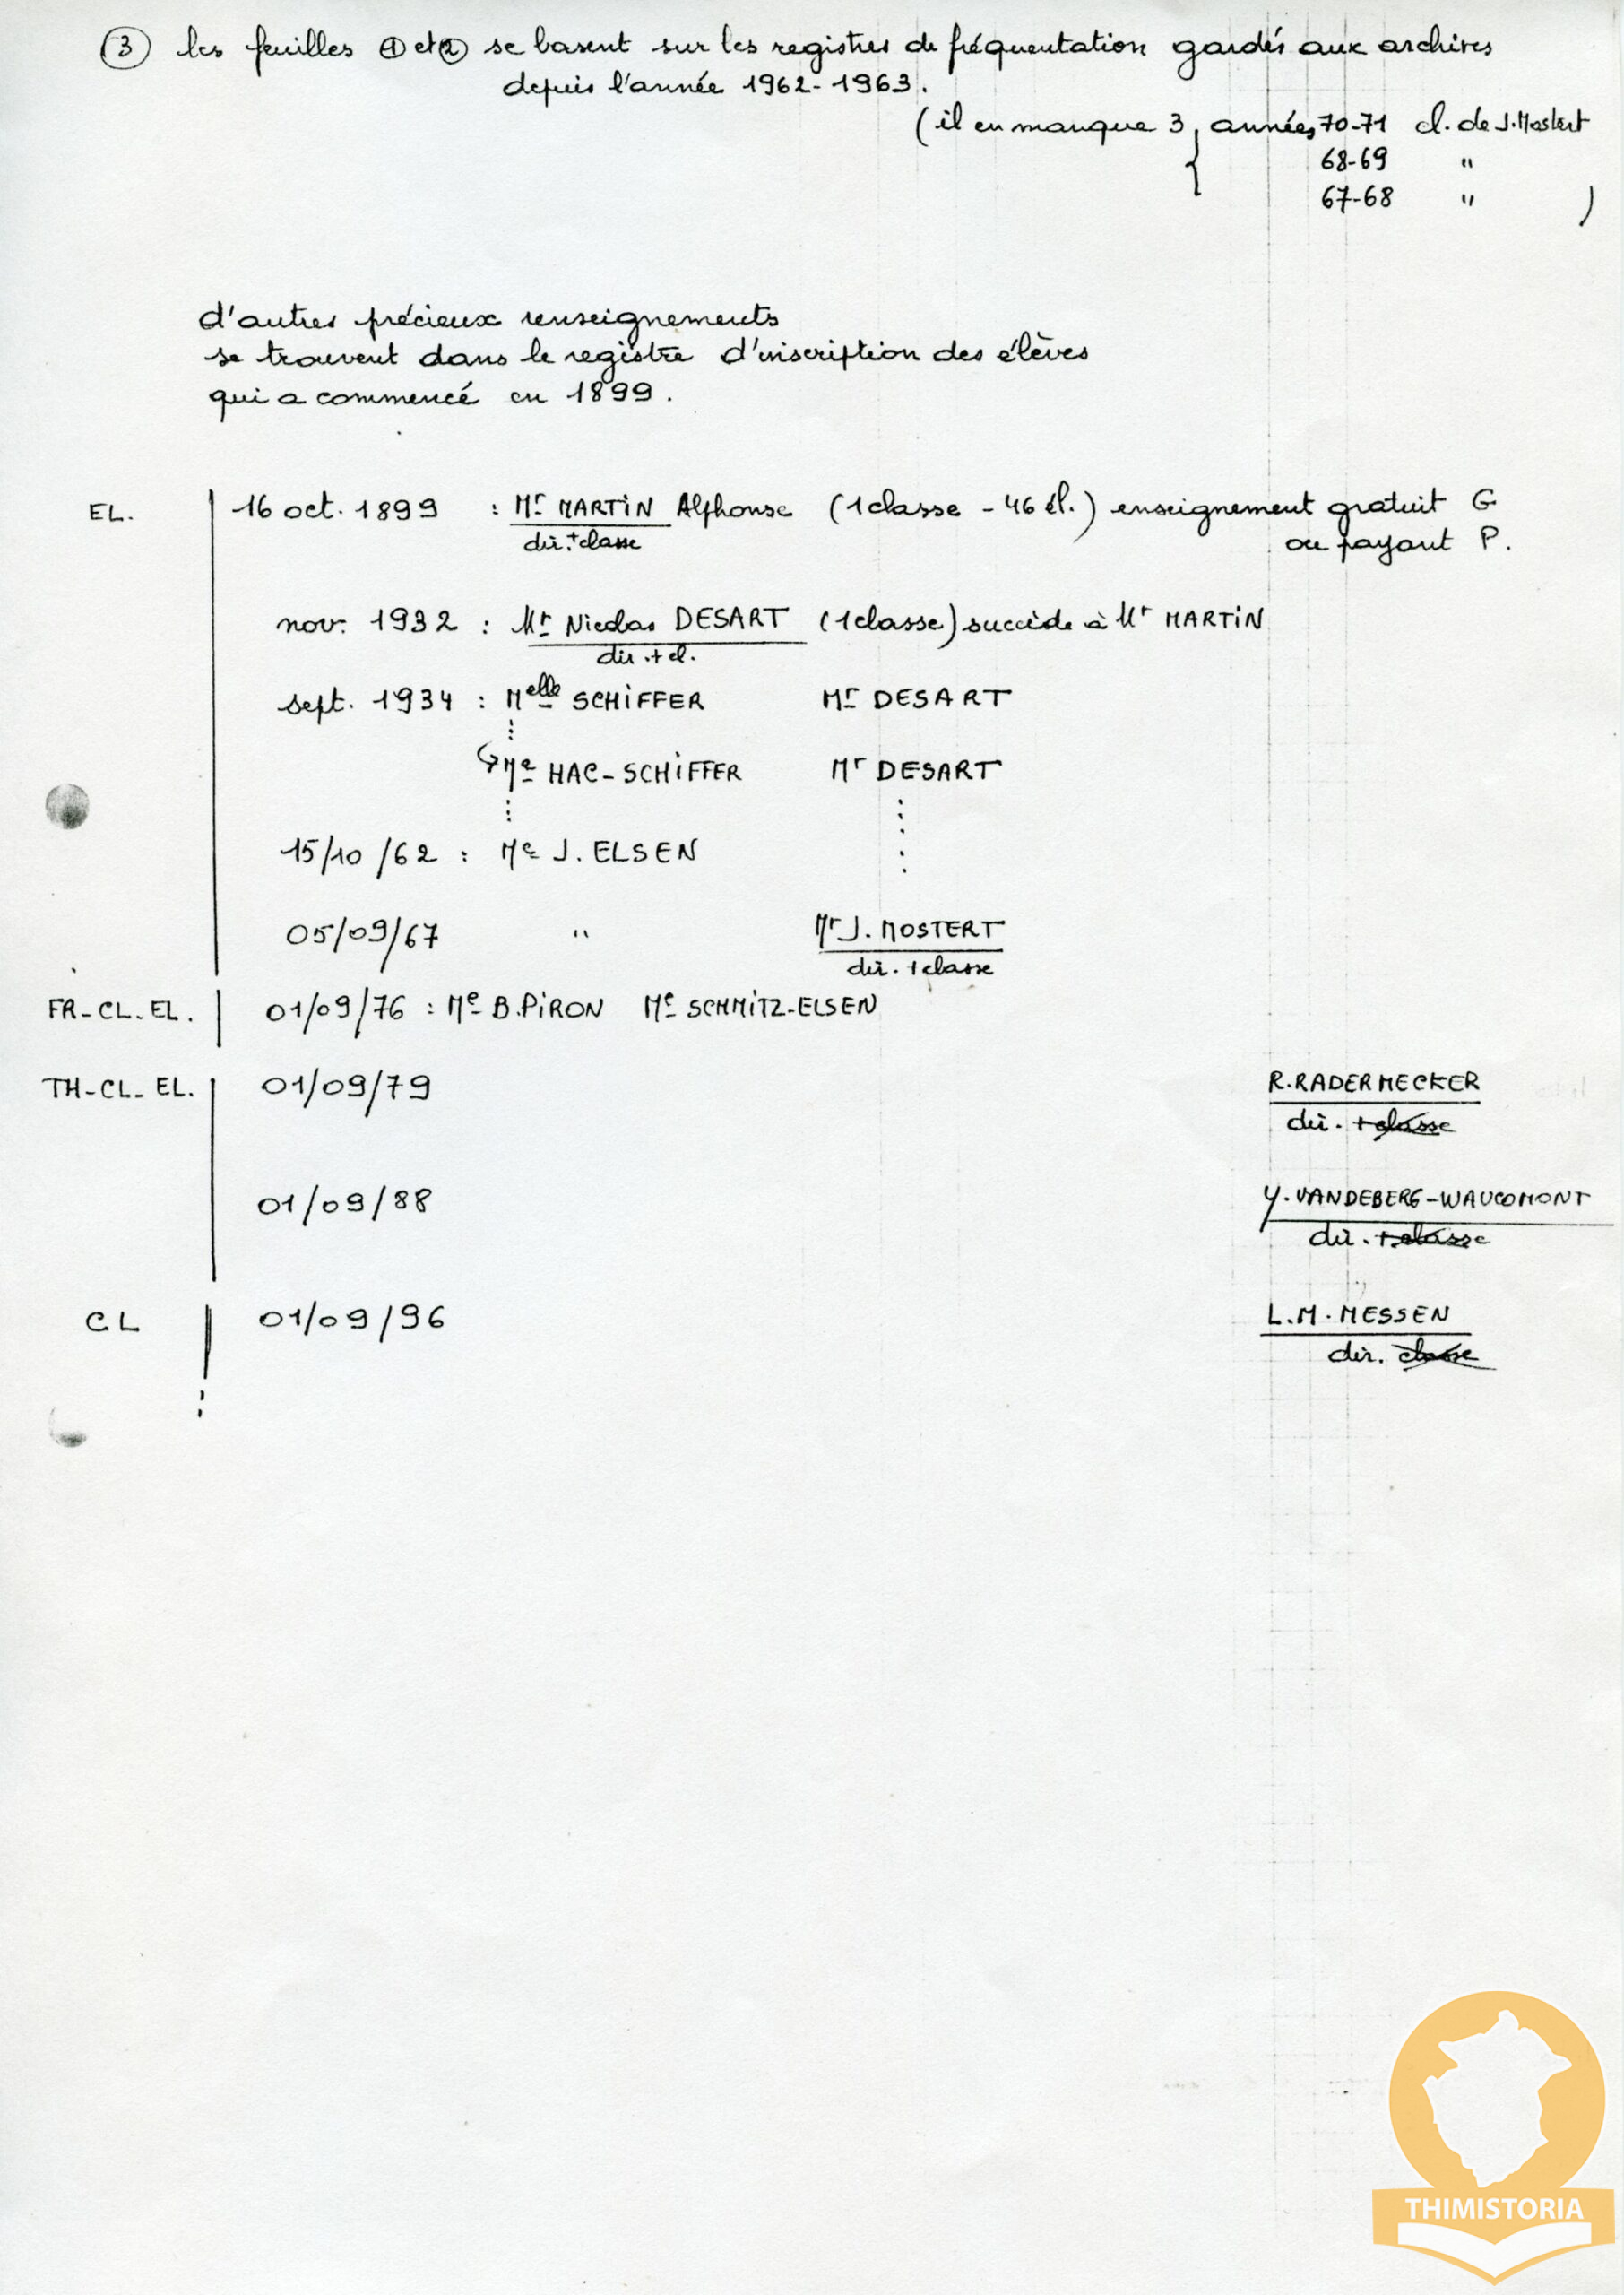 ③ les feuilles ① et ② se basent sur les registres de fréquentation gardés aux archives
depuis l'année 1962-1963.
(il en manque 3 années 70-71 cl. de J. Mostert
{ 68-69 "
67-68 " )
d'autres précieux renseignements
se trouvent dans le registre d'inscription des élèves
qui a commencé en 1899.
EL. 16 oct. 1899 : Mr MARTIN Alphonse (1 classe - 46 él.) enseignement gratuit G
dir. + classe ou payant P.
nov. 1932 : Mr Nicolas DESART (1 classe) succède à Mr MARTIN
dir. + cl.
sept. 1934 : Melle SCHIFFER Mr DESART
Me HAC-SCHIFFER Mr DESART
15/10/62 : Me J. ELSEN
05/09/67 " Mr J. MOSTERT
dir. + classe
FR-CL-EL. 01/09/76 : Me B. PIRON Me SCHMITZ-ELSEN
TH-CL-EL. 01/09/79 R. RADERMECKER
dir. + classe
01/09/88 Y. VANDEBERG-WAUCOMONT
dir. + classe
CL 01/09/96 L.M. MESSEN
dir. classe
THIMISTORIA